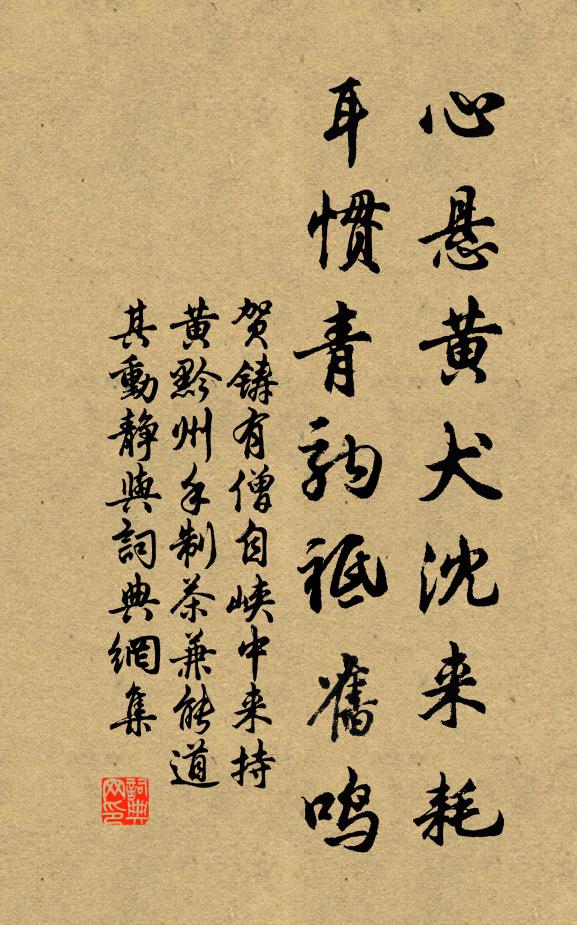 心悬黄犬沈来耗
耳惯青祗舊鸣
贺铸有僧自峡中来持
黄黔州手制茶兼能道
其動静與詞典網集
詞典网印